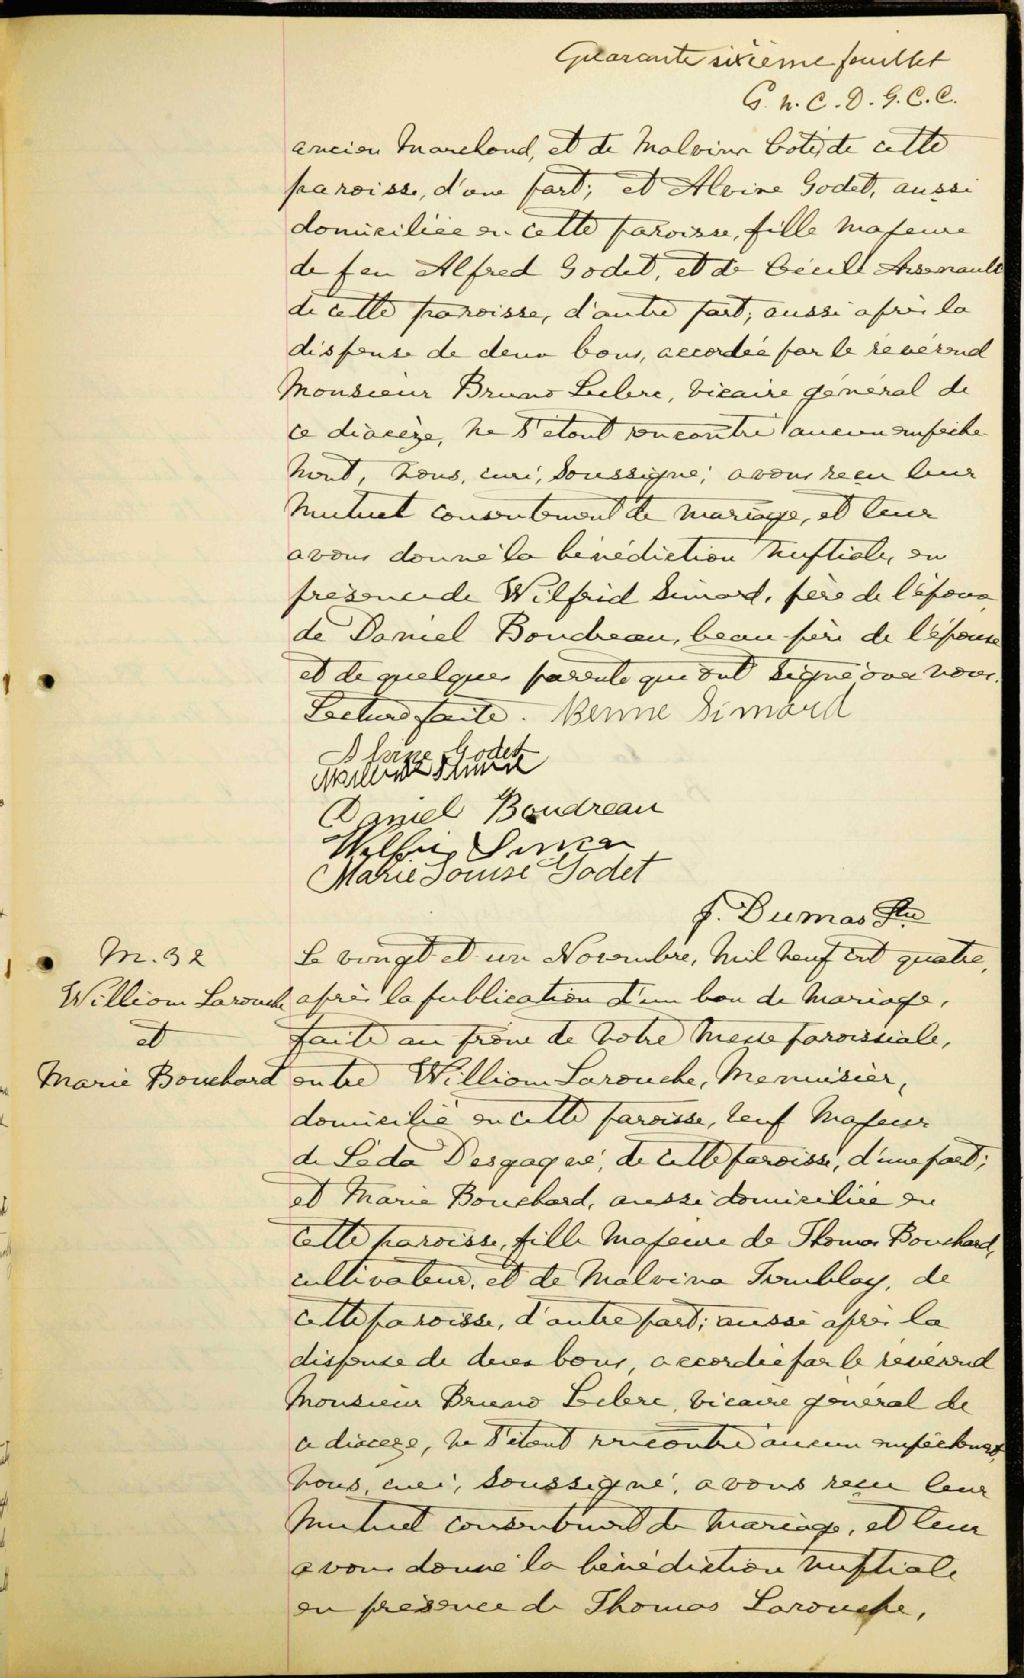 Quarante sixième feuillet
G. n. C. D. G. C. C.
ancien Marchand, et de Malvina Coté, de cette
paroisse, d'une part; et Alvine Godet, aussi
domiciliée en cette paroisse, fille majeure
de feu Alfred Godet, et de Cécile Arsenault
de cette paroisse, d'autre part; aussi après la
dispense de deux bans, accordée par le révérend
Monsieur Bruno Leclerc, vicaire général de
ce diocèze, ne s'étant rencontré aucun empêche
ment, nous, curé, soussigné, avons reçu leur
mutuel consentement de mariage, et leur
avons donné la bénédiction nuptiale, en
présence de Wilfrid Simard, père de l'époux,
de Daniel Boudreau, beau-père de l'épouse
et de quelques parents qui ont signé avec nous.
Lecture faite. Simard
Alvine Godet
Daniel Boudreau
Marie Louise Godet
J. Dumas Ptre
M. 32
William Larouche
et
Marie Bouchard
Le vingt et un Novembre, mil neuf cent quatre,
après la publication d'un ban de mariage,
faite au prône de notre messe paroissiale,
entre William Larouche, Menuisier,
domicilié en cette paroisse, veuf majeur
de Léda Desgagné, de cette paroisse, d'une part;
et Marie Bouchard, aussi domiciliée en
cette paroisse, fille majeure de Thomas Bouchard,
cultivateur, et de Malvina Tremblay, de
cette paroisse, d'autre part; aussi après la
dispense de deux bans, accordée par le révérend
Monsieur Bruno Leclerc, vicaire général de
ce diocèze, ne s'étant rencontré aucun empêchement,
nous, curé, soussigné, avons reçu leur
mutuel consentement de mariage, et leur
avons donné la bénédiction nuptiale
en présence de Thomas Larouche,